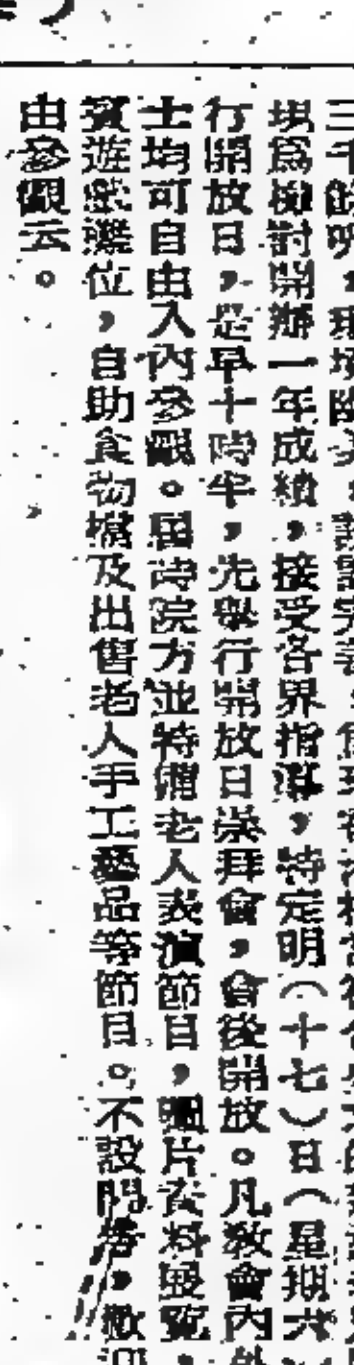 三千餘呎，環境
現爲檢討開辦一年成績，接受各界指導，特定明（十七）日（星期六
行開放日，是早十時半，先舉行開放日崇拜會，會後開放。凡敎會內外
士均可自由入內參觀。屆時院方並特備老人表演節目，圖片資料展覽，
賓遊戲攤位，自助食物檔及出售老人手工藝品等節目。不設門券，歡迎
由參觀云。